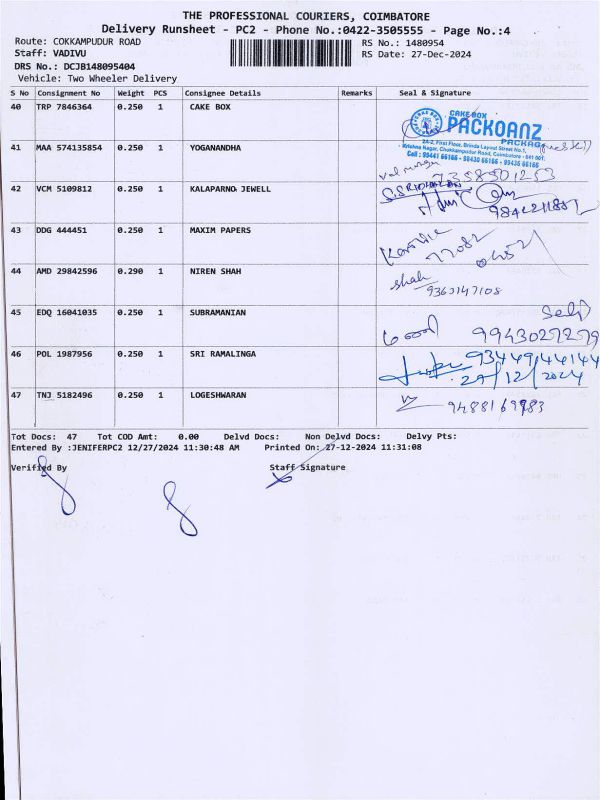 THE PROFESSIONAL COURIERS, COIMBATORE
Delivery Runsheet - PC2 - Phone No.:0422-3505555 - Page No.:4
Route: COKKAMPUDUR ROAD RS No.: 1480954
Staff: VADIVU RS Date: 27-Dec-2024
DRS No.: DCJB148095404
Vehicle: Two Wheeler Delivery
S No Consignment No Weight PCS Consignee Details Remarks Seal & Signature
40 TRP 7846364 0.250 1 CAKE BOX
CAKE BOX
PACKOANZ
PACKAG
2A-2, First Floor, Brinda Layout Street No.1,
Krishna Nagar, Chokkampudur Road, Coimbatore - 641 001.
Cell : 99441 66166 - 98430 66166 - 99436 66166
41 MAA 574135854 0.250 1 YOGANANDHA
7358501253
42 VCM 5109812 0.250 1 KALAPARNO JEWELL
43 DDG 444451 0.250 1 MAXIM PAPERS
77082
44 AMD 29842596 0.290 1 NIREN SHAH
shah
9363147108
45 EDQ 16041035 0.250 1 SUBRAMANIAN
9943027279
46 POL 1987956 0.250 1 SRI RAMALINGA
9344944144
47 TNJ 5182496 0.250 1 LOGESHWARAN
Tot Docs: 47 Tot COD Amt: 0.00 Delvd Docs: Non Delvd Docs: Delvy Pts:
Entered By :JENIFERPC2 12/27/2024 11:30:48 AM Printed On: 27-12-2024 11:31:08
Verified By Staff Signature